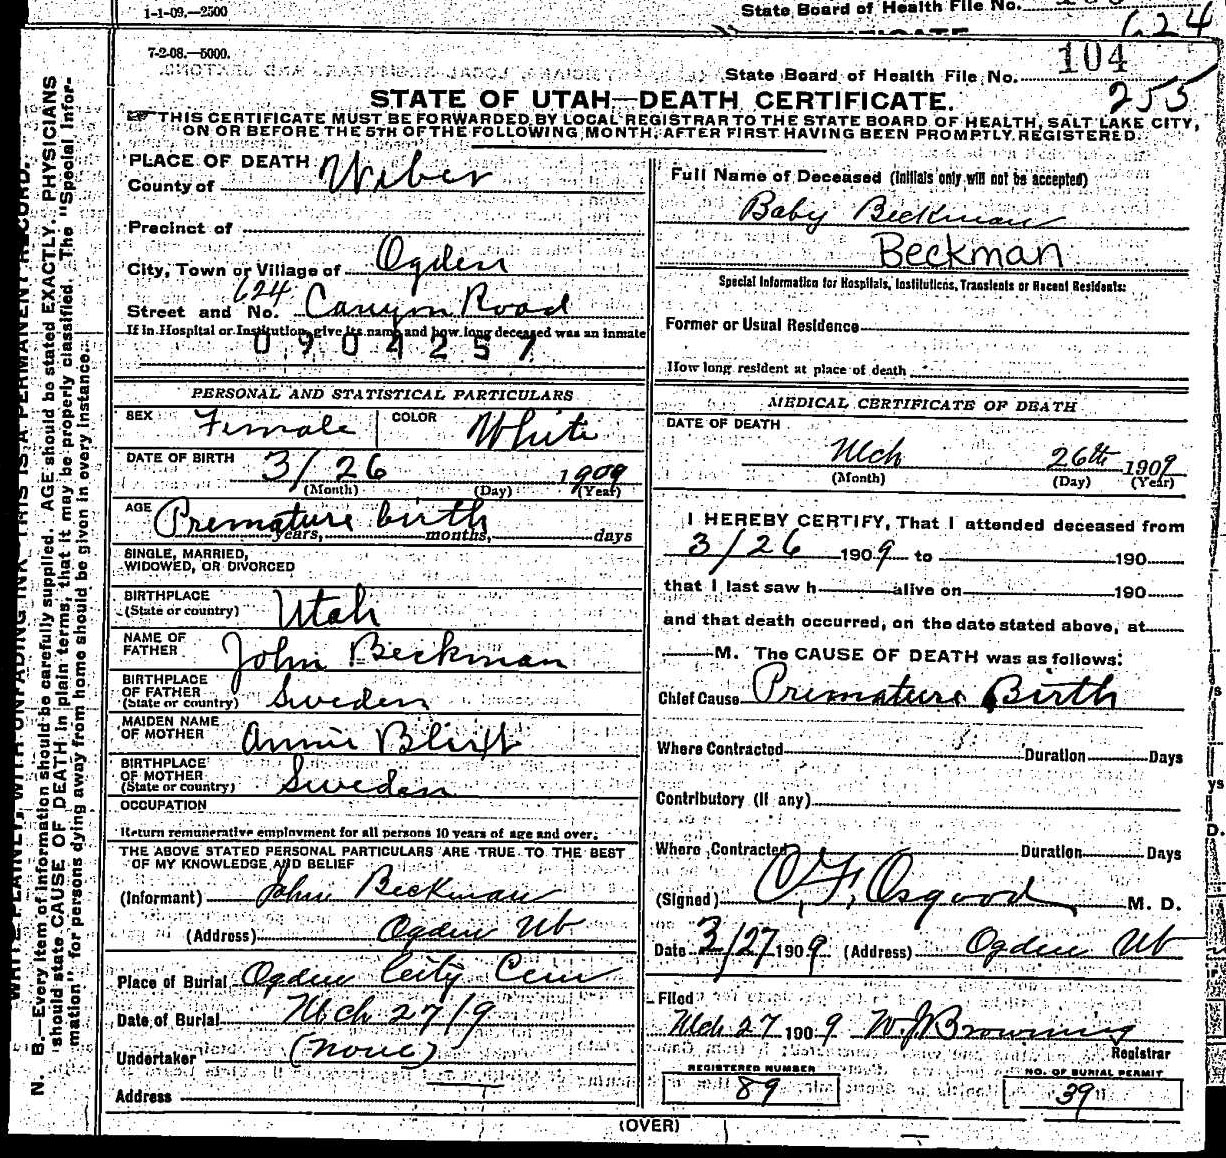 1-1-09.—2500
State Board of Health File No.
624
7-2-08.—5000.
State Board of Health File No. 104
255
STATE OF UTAH—DEATH CERTIFICATE.
THIS CERTIFICATE MUST BE FORWARDED BY LOCAL REGISTRAR TO THE STATE BOARD OF HEALTH, SALT LAKE CITY,
ON OR BEFORE THE 5TH OF THE FOLLOWING MONTH, AFTER FIRST HAVING BEEN PROMPTLY REGISTERED.
PLACE OF DEATH
County of Weber
Precinct of
City, Town or Village of Ogden
Street and No. 624 Canyon Road
If in Hospital or Institution, give its name and how long deceased was an inmate
0904257
Full Name of Deceased (Initials only will not be accepted)
Baby Beckman
Beckman
Special Information for Hospitals, Institutions, Transients or Recent Residents:
Former or Usual Residence
How long resident at place of death
PERSONAL AND STATISTICAL PARTICULARS
SEX Female COLOR White
DATE OF BIRTH 3/26 1909
(Month) (Day) (Year)
AGE Premature birth
years, months, days
SINGLE, MARRIED,
WIDOWED, OR DIVORCED
BIRTHPLACE
(State or country) Utah
NAME OF
FATHER John Beckman
BIRTHPLACE
OF FATHER
(State or country) Sweden
MAIDEN NAME
OF MOTHER Annie
BIRTHPLACE
OF MOTHER
(State or country) Sweden
OCCUPATION
Return remunerative employment for all persons 10 years of age and over.
THE ABOVE STATED PERSONAL PARTICULARS ARE TRUE TO THE BEST
OF MY KNOWLEDGE AND BELIEF
(Informant) John Beckman
(Address) Ogden Ut
Place of Burial Ogden City Cem
Date of Burial Mch 27/9
Undertaker (none)
Address
MEDICAL CERTIFICATE OF DEATH
DATE OF DEATH
Mch 26th 1909
(Month) (Day) (Year)
I HEREBY CERTIFY, That I attended deceased from
3/26 1909 to 190
that I last saw h alive on 190
and that death occurred, on the date stated above, at
M. The CAUSE OF DEATH was as follows:
Chief Cause Premature Birth
Where Contracted Duration Days
Contributory (if any)
Where Contracted Duration Days
(Signed) O. F. Osgood M. D.
Date 3/27 1909 (Address) Ogden Ut
Filed
Mch 27 1909 W. J. Browning
Registrar
REGISTERED NUMBER
89
NO. OF BURIAL PERMIT
39
(OVER)
WRITE PLAINLY, WITH UNFADING INK—THIS IS A PERMANENT RECORD.
N. B.—Every item of information should be carefully supplied. AGE should be stated EXACTLY. PHYSICIANS
should state CAUSE OF DEATH in plain terms, that it may be properly classified. The "Special Infor-
mation" for persons dying away from home should be given in every instance.